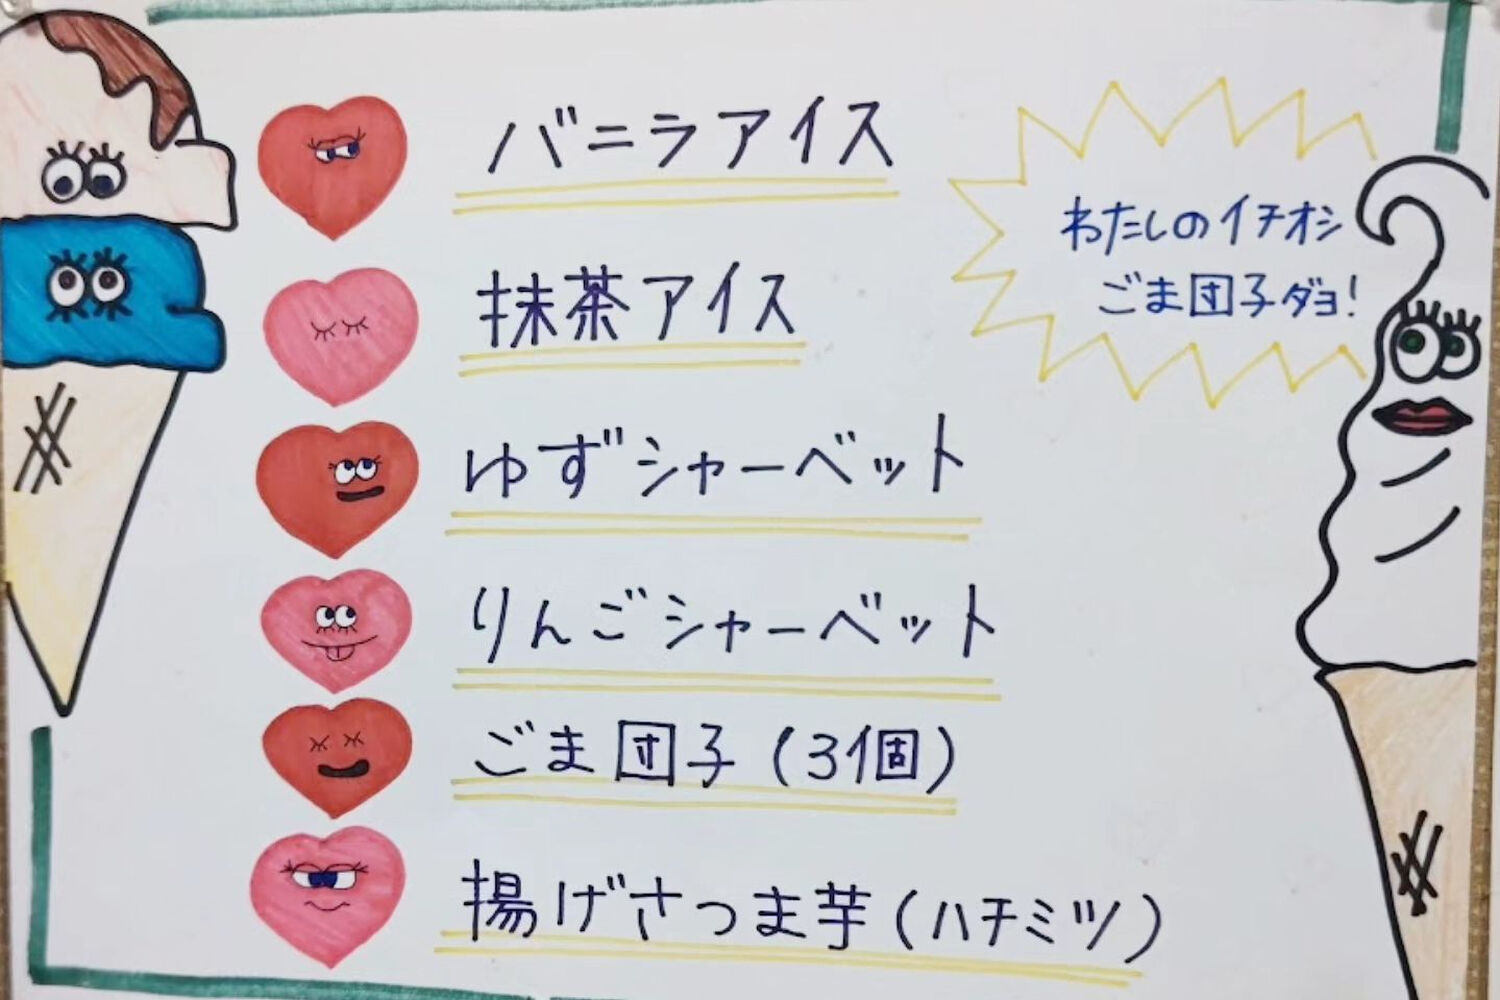 バニラアイス
抹茶アイス
ゆずシャーベット
りんごシャーベット
ごま団子(3個)
揚げさつま芋(ハチミツ)
わたしのイチオシ
ごま団子ダョ!